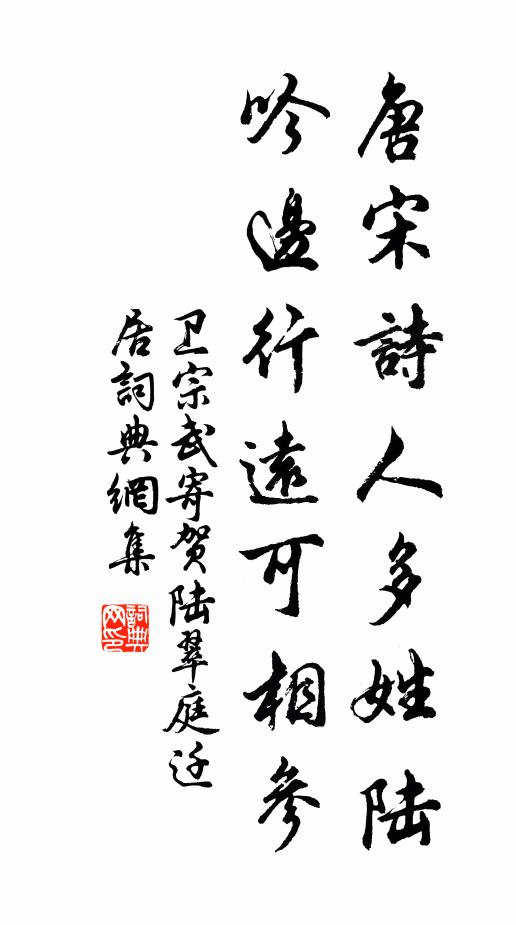 唐宋詩人多姓陆
吟邊行遠可相參
卫宗武寄贺陆翠庭迁
居詞典網集
詞典网印